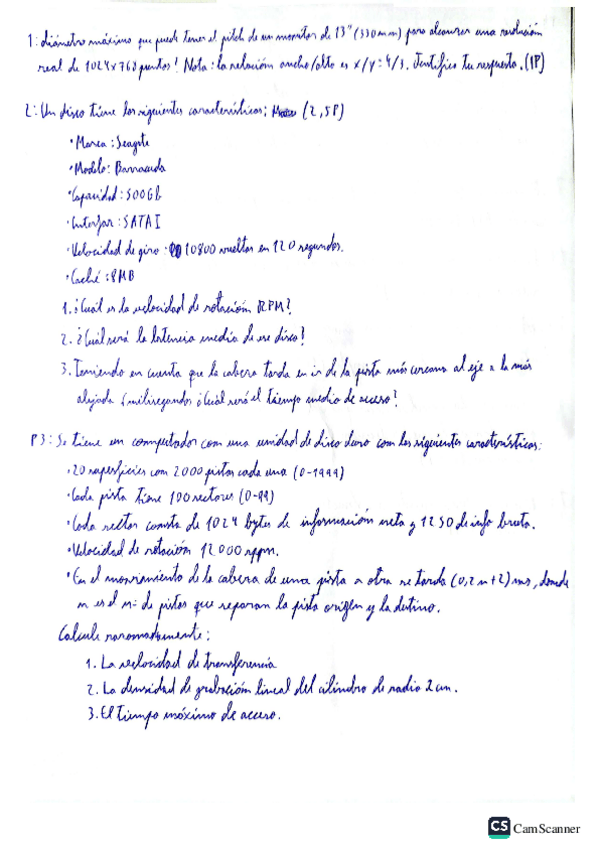 1: diámetro máximo que puede tener el pitch de un monitor de 13" (330mm) para alcanzar una resolución
real de 1024x768 puntos? Nota: la relación ancho/alto es x/y: 4/3. Justifica tu respuesta. (1P)
2: Un disco tiene las siguientes características: (2,5P)
· Marca: Seagate
· Modelo: Barracuda
· Capacidad: 500Gb
· Interfaz: SATA I
· Velocidad de giro: 10800 vueltas en 120 segundos.
· Caché: 8MB
1. ¿Cuál es la velocidad de rotación RPM?
2. ¿Cuál será la latencia media de ese disco?
3. Teniendo en cuenta que la cabeza tarda en ir de la pista más cercana al eje a la más
alejada milisegundos ¿Cuál será el tiempo medio de acceso?
P3: Se tiene un computador con una unidad de disco duro con las siguientes características:
· 20 superficies con 2000 pistas cada una (0-1999)
· Cada pista tiene 100 sectores (0-99)
· Cada sector consta de 1024 bytes de información neta y 1250 de info bruta.
· Velocidad de rotación 12000 rppm.
· En el movimiento de la cabeza de una pista a otra se tarda (0,2n+2) ms, donde
n es el nº de pistas que separan la pista origen y la destino.
Calcule razonadamente:
1. La velocidad de transferencia
2. La densidad de grabación lineal del cilindro de radio 2cm.
3. El tiempo máximo de acceso.
CS CamScanner